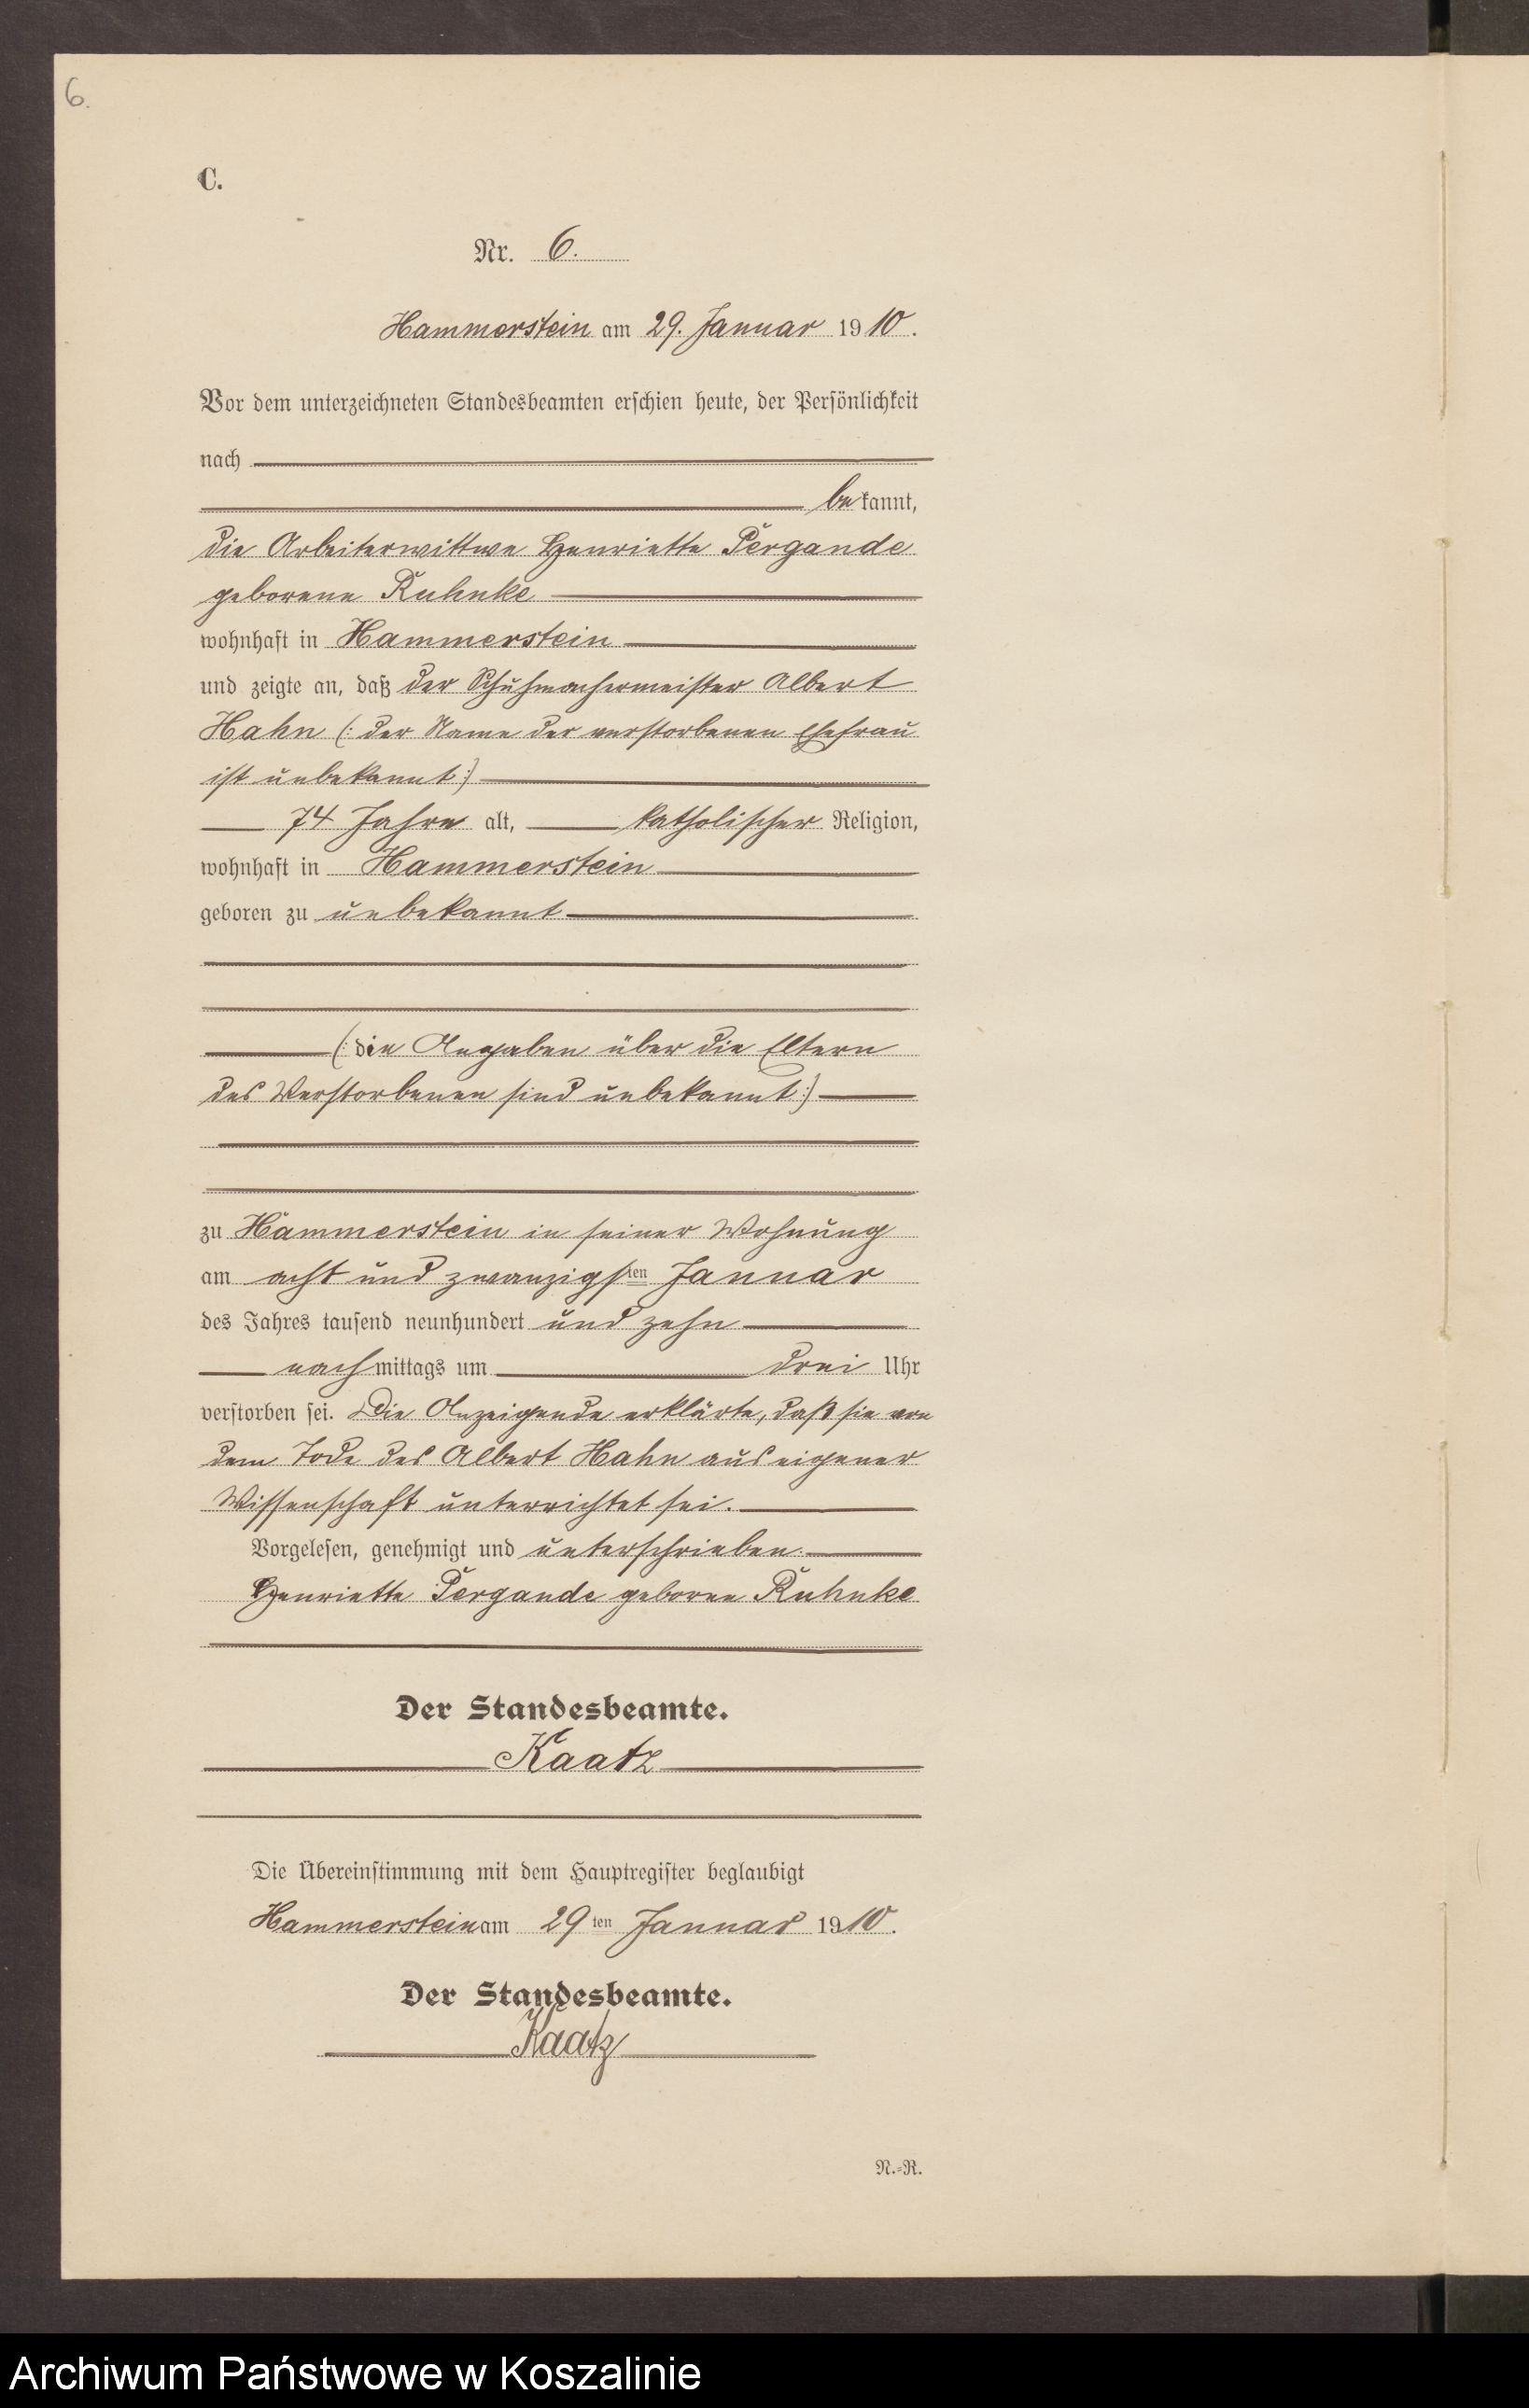 6.
C.
Nr. 6.
Hammerstein am 29. Januar 1910.
Vor dem unterzeichneten Standesbeamten erschien heute, der Persönlichkeit
nach
bekannt,
die Arbeiterwittwe Henriette Pergande
geborene Kuhnke
wohnhaft in Hammerstein
und zeigte an, daß der Schuhmachermeister Albert
Hahn (: der Name der verstorbenen Ehefrau
ist unbekannt :)
74 Jahre alt, katholischer Religion,
wohnhaft in Hammerstein
geboren zu unbekannt
(: die Angaben über die Eltern
des Verstorbenen sind unbekannt :)
zu Hammerstein in seiner Wohnung
am acht und zwanzigsten Januar
des Jahres tausend neunhundert und zehn
nachmittags um drei Uhr
verstorben sei. Die Anzeigende erklärte, daß sie von
dem Tode des Albert Hahn aus eigener
Wissenschaft unterrichtet sei.
Vorgelesen, genehmigt und unterschrieben.
Henriette Pergande geborne Kuhnke
Der Standesbeamte.
Kaatz
Die Übereinstimmung mit dem Hauptregister beglaubigt
Hammerstein am 29ten Januar 1910.
Der Standesbeamte.
Kaatz
N.=R.
Archiwum Państwowe w Koszalinie